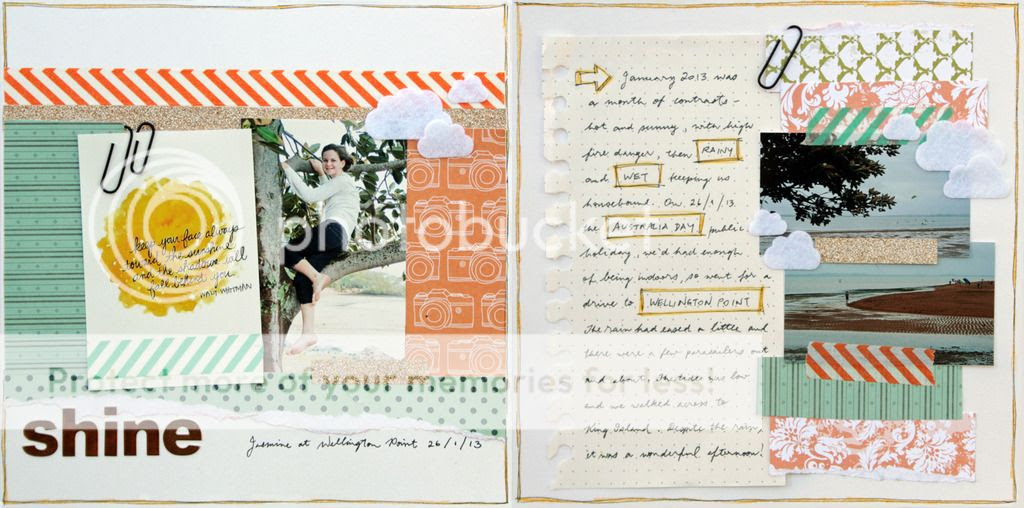 keep your face always
toward the sunshine
and the shadows will
fall behind you
WALT WHITMAN
shine
Jasmine at Wellington Point 26/1/13
January 2013 was
a month of contrasts -
hot and sunny, with high
fire danger, then RAINY
and WET keeping us
housebound. On 26/1/13
the AUSTRALIA DAY public
holiday, we'd had enough
of being indoors, so went for a
drive to WELLINGTON POINT
The rain had eased a little and
there were a few parasailers out
and about. The tide was low
and we walked across to
King Island. Despite the rain,
it was a wonderful afternoon!
photobucket
Protect more of your memories for less!